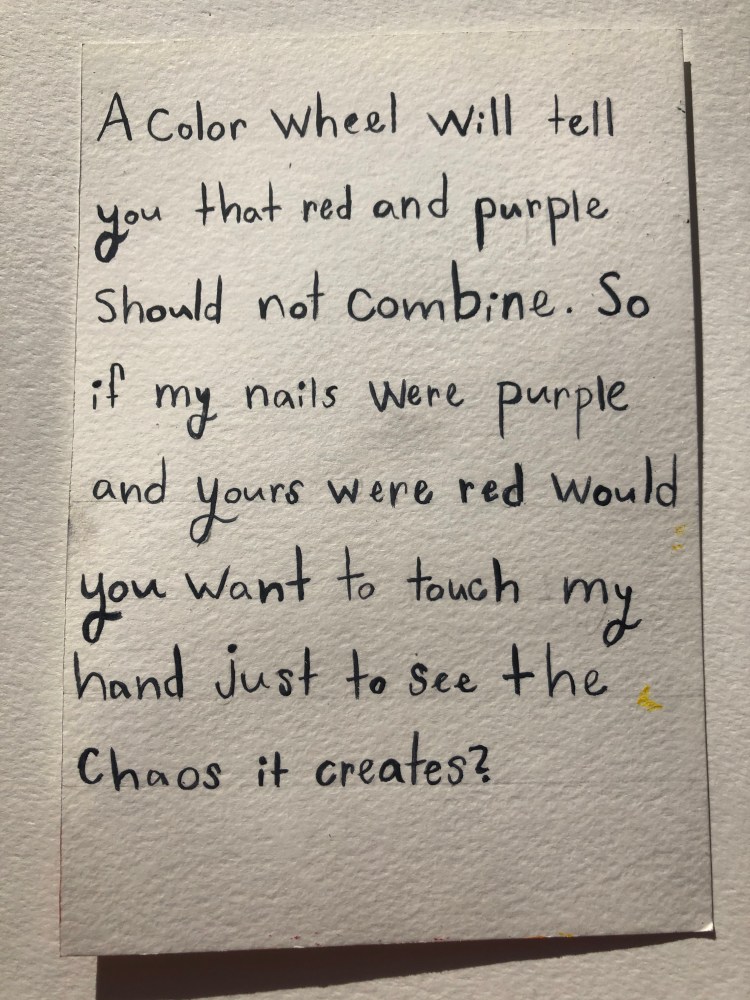 A Color wheel will tell
you that red and purple
should not combine. So
if my nails were purple
and yours were red would
you want to touch my
hand just to see the
Chaos it creates?